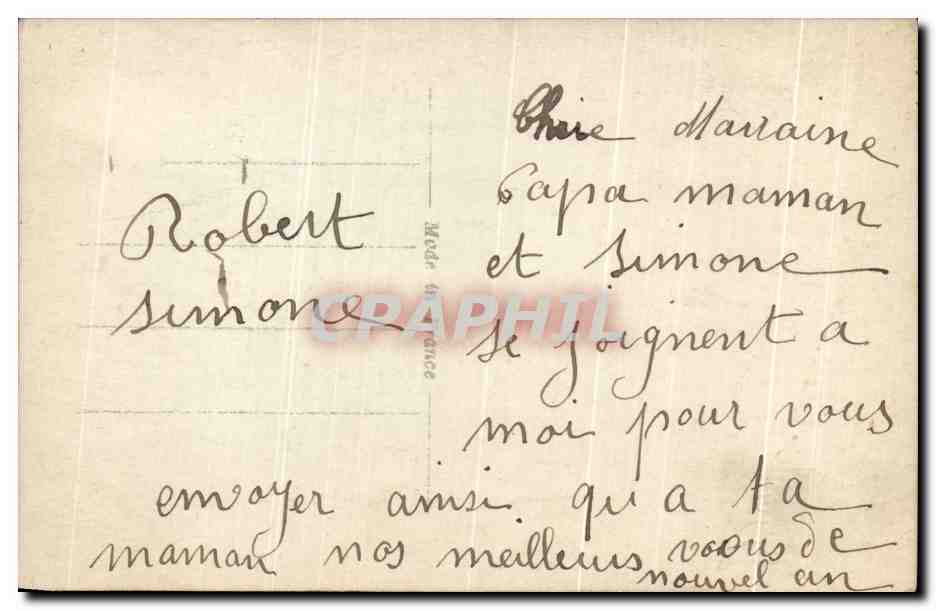 Chère Marraine
Papa maman
et Simone
se joignent a
moi pour vous
envoyer ainsi qu a ta
maman nos meilleurs voeus de
nouvel an
Robert
simone
Made in France
CPAPHIL